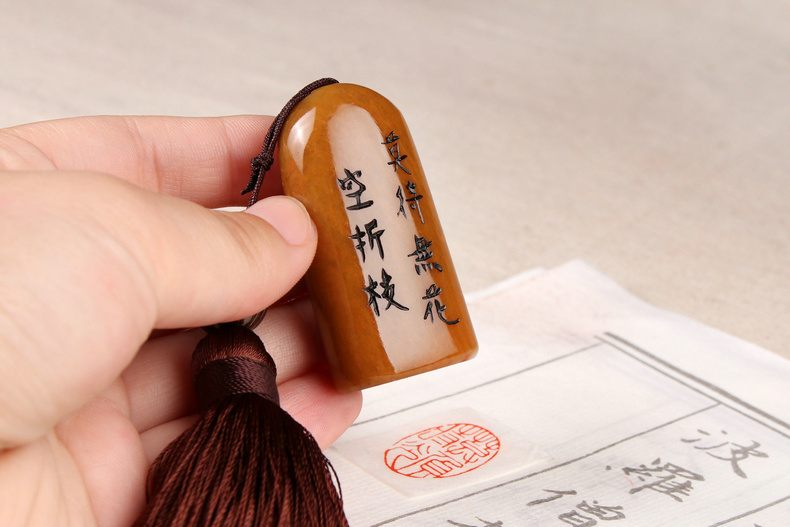 莫待無花
空折枝
波
羅
僧